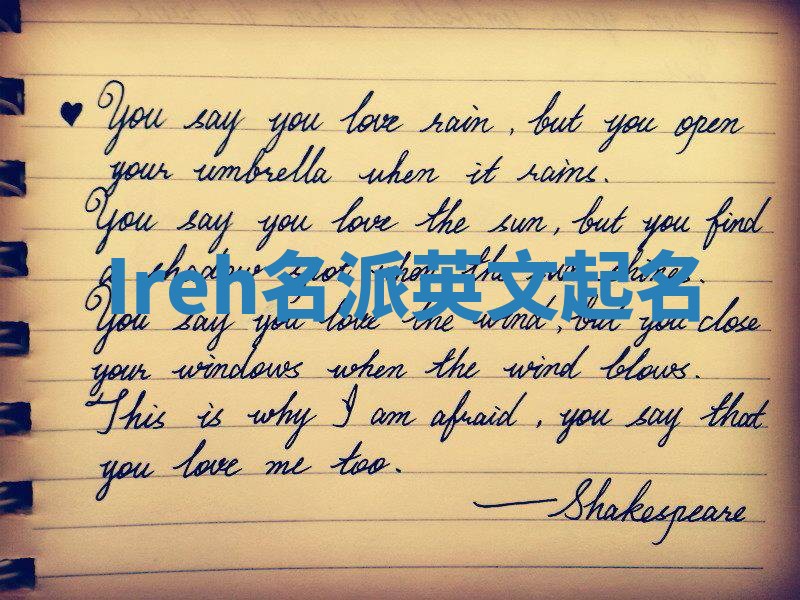 ♥ You say you love rain, but you open
your umbrella when it rains.
You say you love the sun, but you find
a shadow spot when the sun shines.
Ireh名派英文起名
You say you love the wind, but you close
your windows when the wind blows.
This is why I am afraid, you say that
you love me too.
—Shakespeare